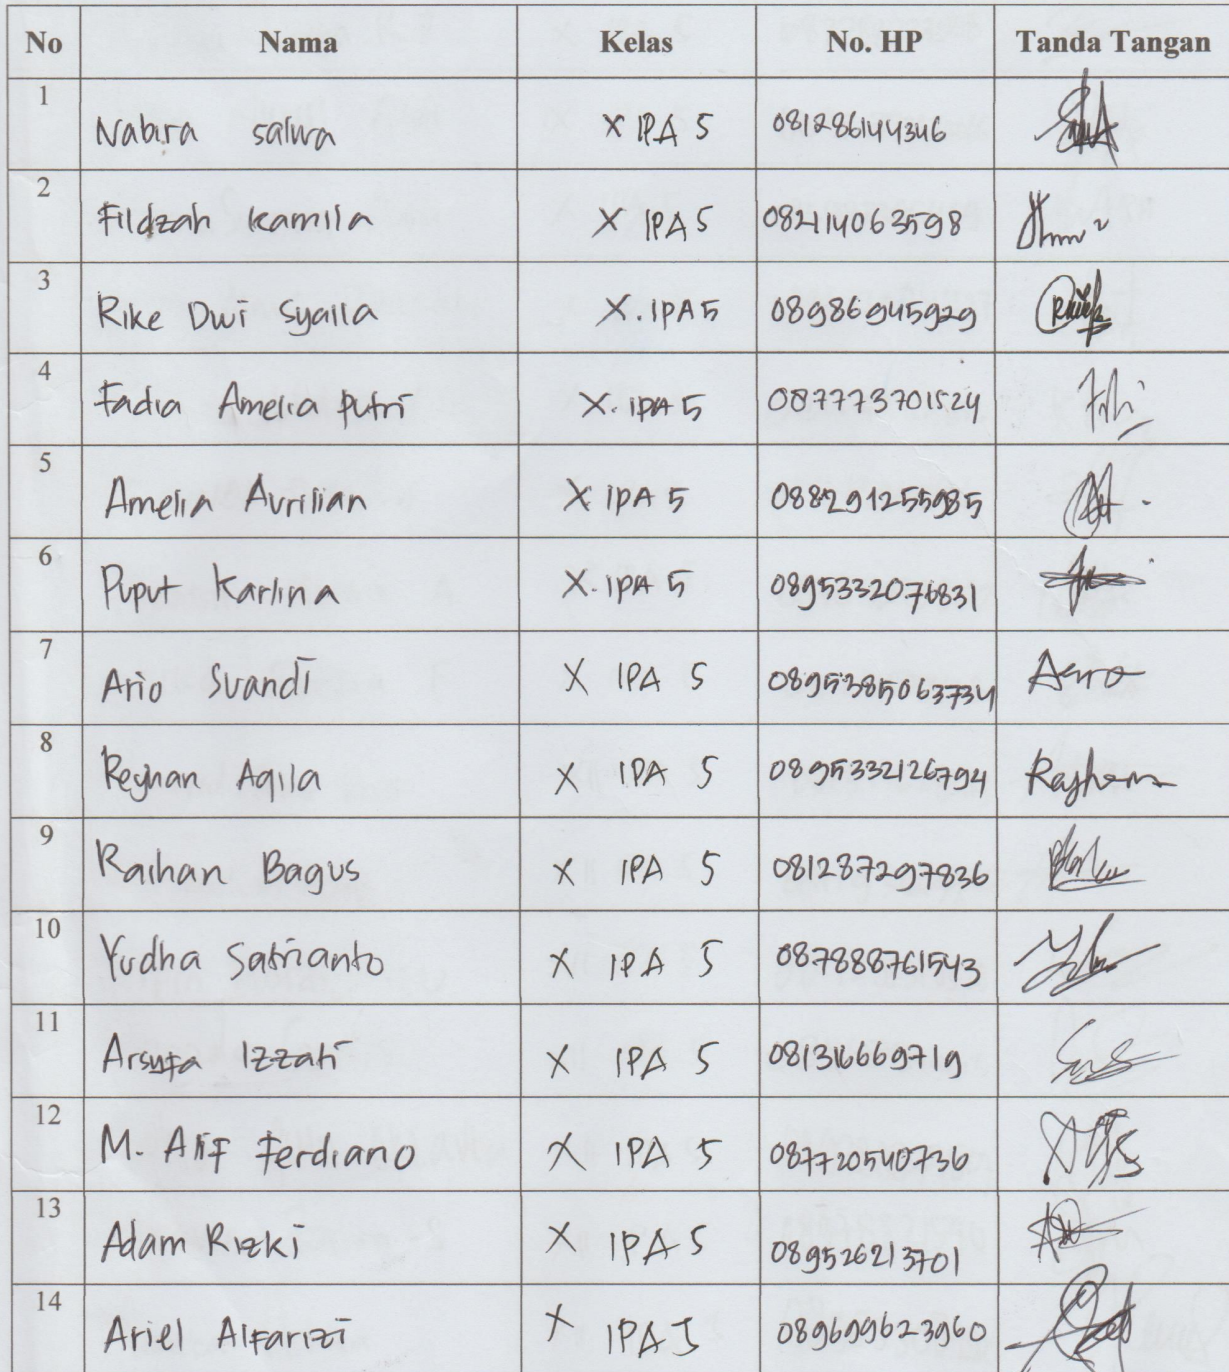 No Nama Kelas No. HP Tanda Tangan
1 Nabira salwa X IPA 5 081286144346
2 Fildzah Kamila X IPA 5 082114063598
3 Rike Dwi Syaila X. IPA 5 08986945929
4 Fadia Amelia Putri X. IPA 5 087773701524
5 Amelia Avrilian X IPA 5 088291255985
6 Puput Karlina X. IPA 5 0895332076831
7 Ario Suandi X IPA 5 0895385063734
8 Reyhan Aqila X IPA 5 0895332126794 Rayhan
9 Raihan Bagus X IPA 5 081287297836
10 Yudha Satrianto X IPA 5 087888761543
11 Izzati X IPA 5 081316669719
12 M. Alif Ferdiano X IPA 5 087720540736
13 Adam Rizki X IPA 5 089526213701
14 Ariel Alfarizi X IPA 5 089699623960